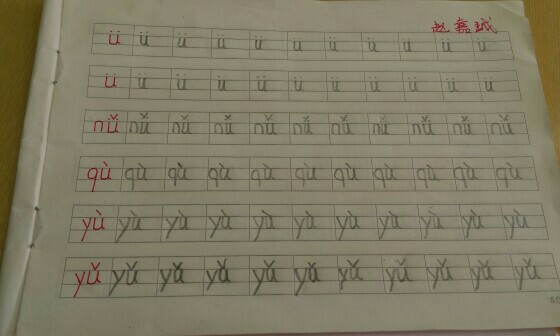 赵嘉
ü ü ü ü ü ü ü ü ü ü ü
ü ü ü ü ü ü ü ü ü ü ü
nǚ nǚ nǚ nǚ nǚ nǚ nǚ nǚ nǚ nǚ nǚ
qù qù qù qù qù qù qù qù qù qù qù
yù yù yù yù yù yù yù yù yù yù yù
yǔ yǔ yǔ yǔ yǔ yǔ yǔ yǔ yǔ yǔ yǔ